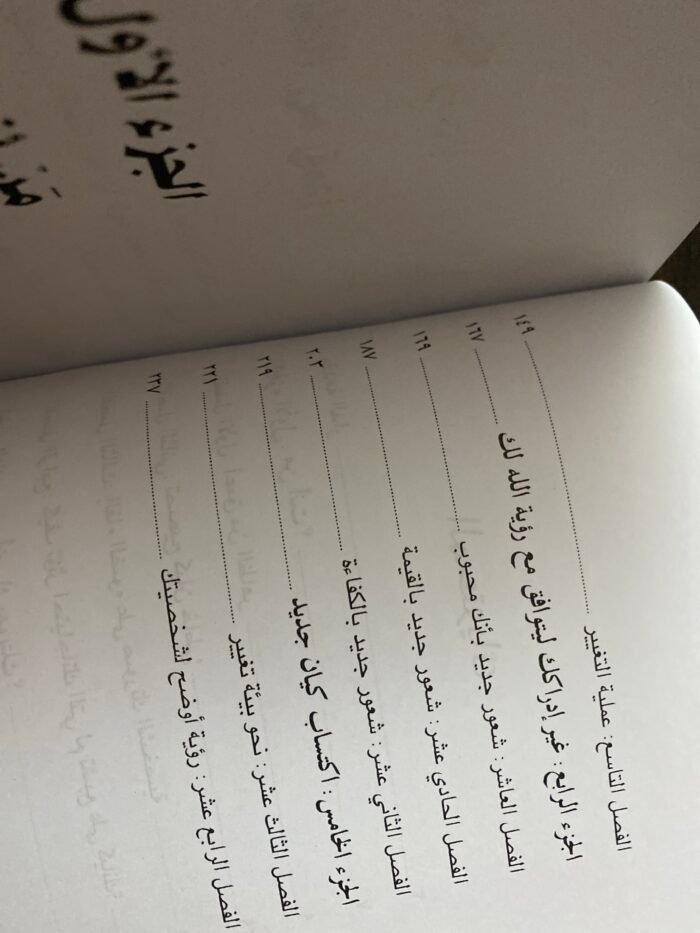 الفصل التاسع: عملية التغيير ........ ١٤٩
الجزء الرابع: غير إدراكك ليتوافق مع رؤية الله لك ........ ١٦٧
الفصل العاشر: شعور جديد بأنك محبوب ........ ١٦٩
الفصل الحادي عشر: شعور جديد بالقيمة ........ ١٨٧
الفصل الثاني عشر: شعور جديد بالكفاءة ........ ٢٠٣
الجزء الخامس: اكتساب كيان جديد ........ ٢١٩
الفصل الثالث عشر: نحو بيئة تغيير ........ ٢٢١
الفصل الرابع عشر: رؤية أوضح لشخصيتك ........ ٢٣٧
الجزء الأول